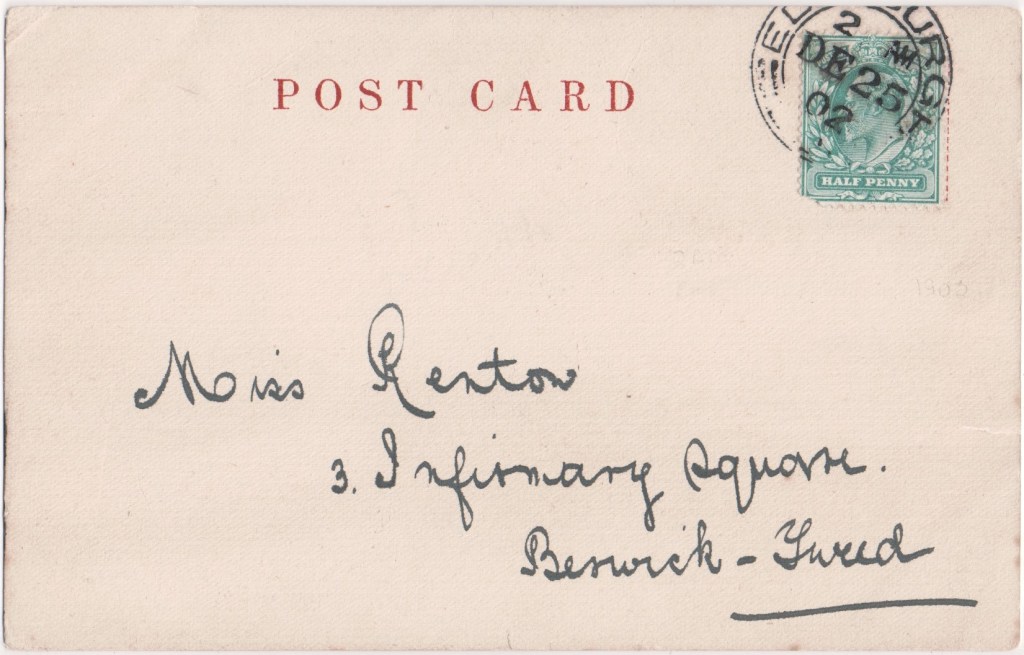 POST CARD
2 AM
DE 25
02
HALF PENNY
Miss Renton
3. Infirmary Square.
Berwick - Tweed